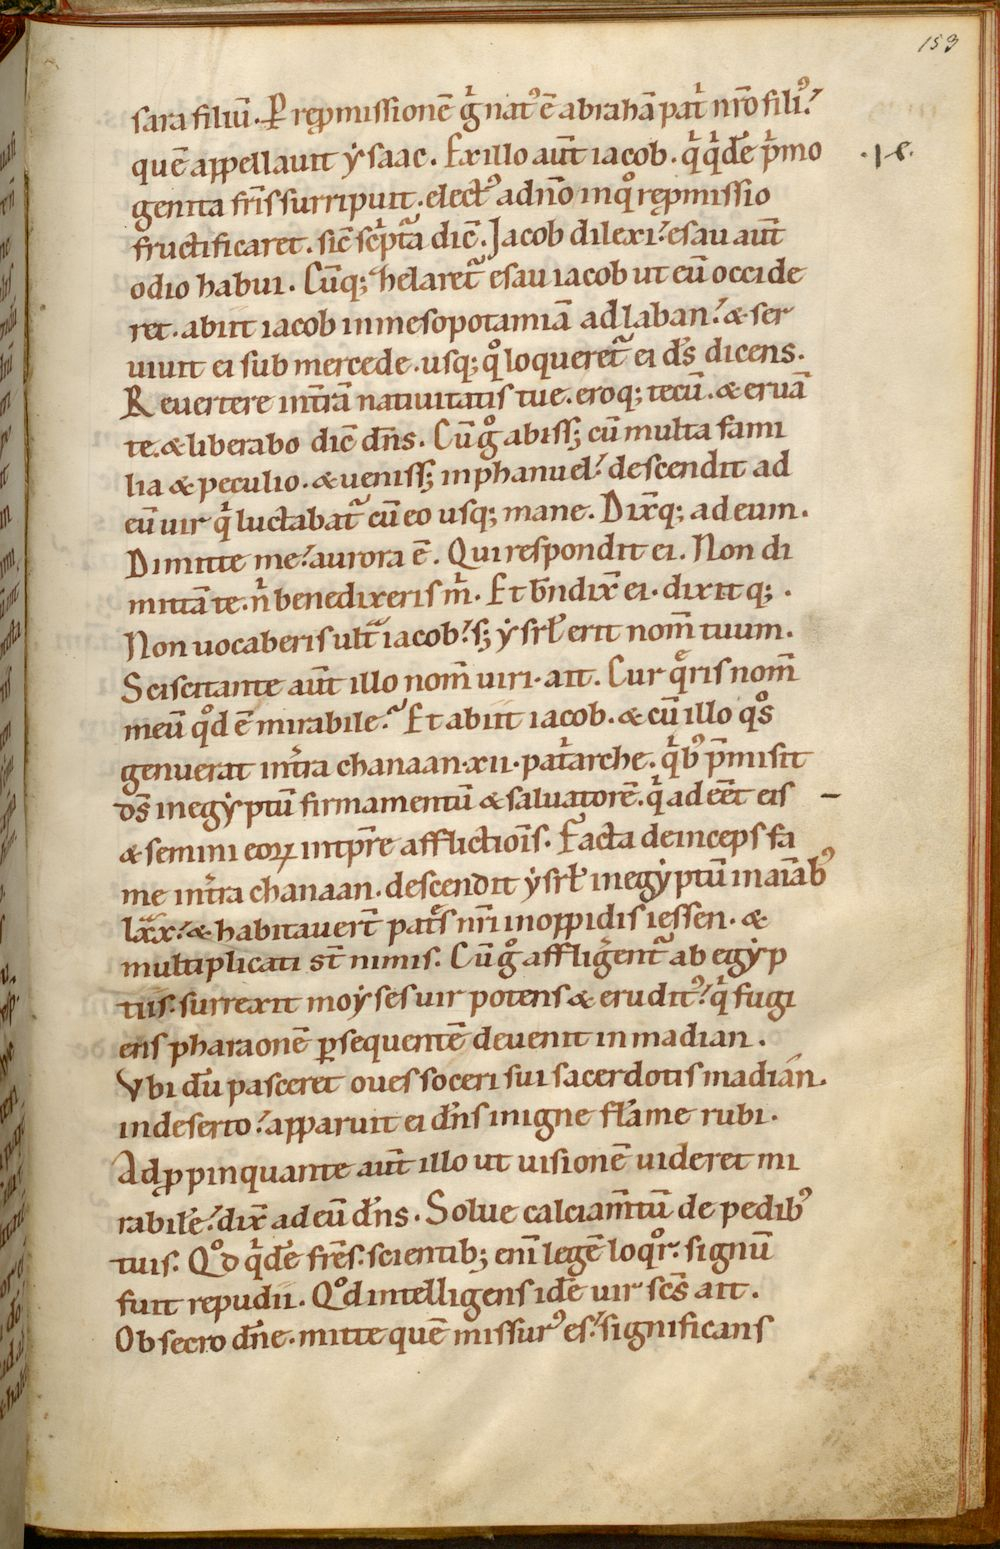 153
sara filiũ. P̱ rep̱missionẽ gͥ nat᾿ ẽ abrahã patͥ nr̃o fili᾿.
quẽ appellauit ẏsaac. Ex illo aũt iacob. qͥ qͥdẽ pͥmo
.l c.
genita fr̃is surripuit. elect᾿ ad nõ in qͦ rep̱missio
fructificaret. sic̃ scͥpta dic̃. Jacob dilexi. esau aũt
odio habui. Cũq; helaret᷑ esau iacob ut eũ occide
ret. abiit iacob in mesopotamiã ad laban. & ser
uiuit ei sub mercede. usq; qͦ loqueret᷑ ei dr̃s dicens.
Reuertere in tr̃ã natiuitatis tue. eroq; tecũ. & eruã
te. & liberabo dic̃ dñs. Cũ gͦ abiss; cũ multa fami
lia & peculio. & ueniss; in phanuel. descendit ad
eũ uir qͥ luctabat᷑ cũ eo usq; mane. Dix̃q; ad eum.
Dimitte me. aurora ẽ. Qui respondit ei. Non di
mittã te. nͥ benedixeris mͥ. Et bñdix̃ ei. dixit q; .
Non uocaberis ult᷑ iacob. s; ẏsrł erit nom̃ tuum.
Sciscitante aũt illo nom̃ uiri. ait. Cur qͤris nom̃
meũ qͦd ẽ mirabile. Et abiit iacob. & cũ illo qͦs
genuerat in tr̃a chanaan .xii. patͥarche. qͥb᾿ p̃misit
ds̃ in egẏptũ firmamentũ & saluatorẽ. qͥ adeẽt eis –
& semini eoꝝ in tp̃re afflictiõis. Facta deinceps fa
me in tr̃a chanaan. descendit ẏsrł in egẏptũ in aiãb᾿
lxx. & habitauer̃t patͤs nr̃i in oppidis iessen. &
multiplicati st̃ nimis. Cũ gͦ affligͤrent᷑ ab egẏp
tiis. surrexit moẏses uir potens & erudit᾿. qͥ fugi
ens pharaonẽ p̱sequentẽ deuenit in madian.
Vbi dũ pasceret oues soceri sui sacerdotis madian.
in deserto. apparuit ei dñs in igne flãme rubi.
Adp̱pinquante aũt illo ut uisionẽ uideret mi
rabilẽ. dix̃ ad eũ dñs. Solue calciam̃tũ de pedib᾿
tuis. Qͦd qͥdẽ fr̃es. scientib; enĩ legẽ loqͦr. signũ
fuit repudii. Qͦd intelligens idẽ uir scs̃ ait.
Obsecro dñe. mitte quẽ missur᾿ es. significans